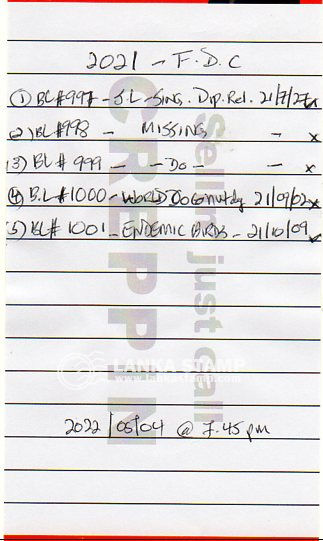 2021 - F.D.C
① BL#997 - S.L - Sing. Dip. Rel. 21/7/27 x
2) BL#998 - MISSING - x
3) BL# 999 - - DO - - x
④ B.L#1000 - WORLD 21/09/02 x
5) BL# 1001 - ENDEMIC BIRDS - 21/10/09
Sellin just Call
CREPPIN
LANKA STAMP
www.lankastamp.com
2022/05/04 @ 7.45 pm